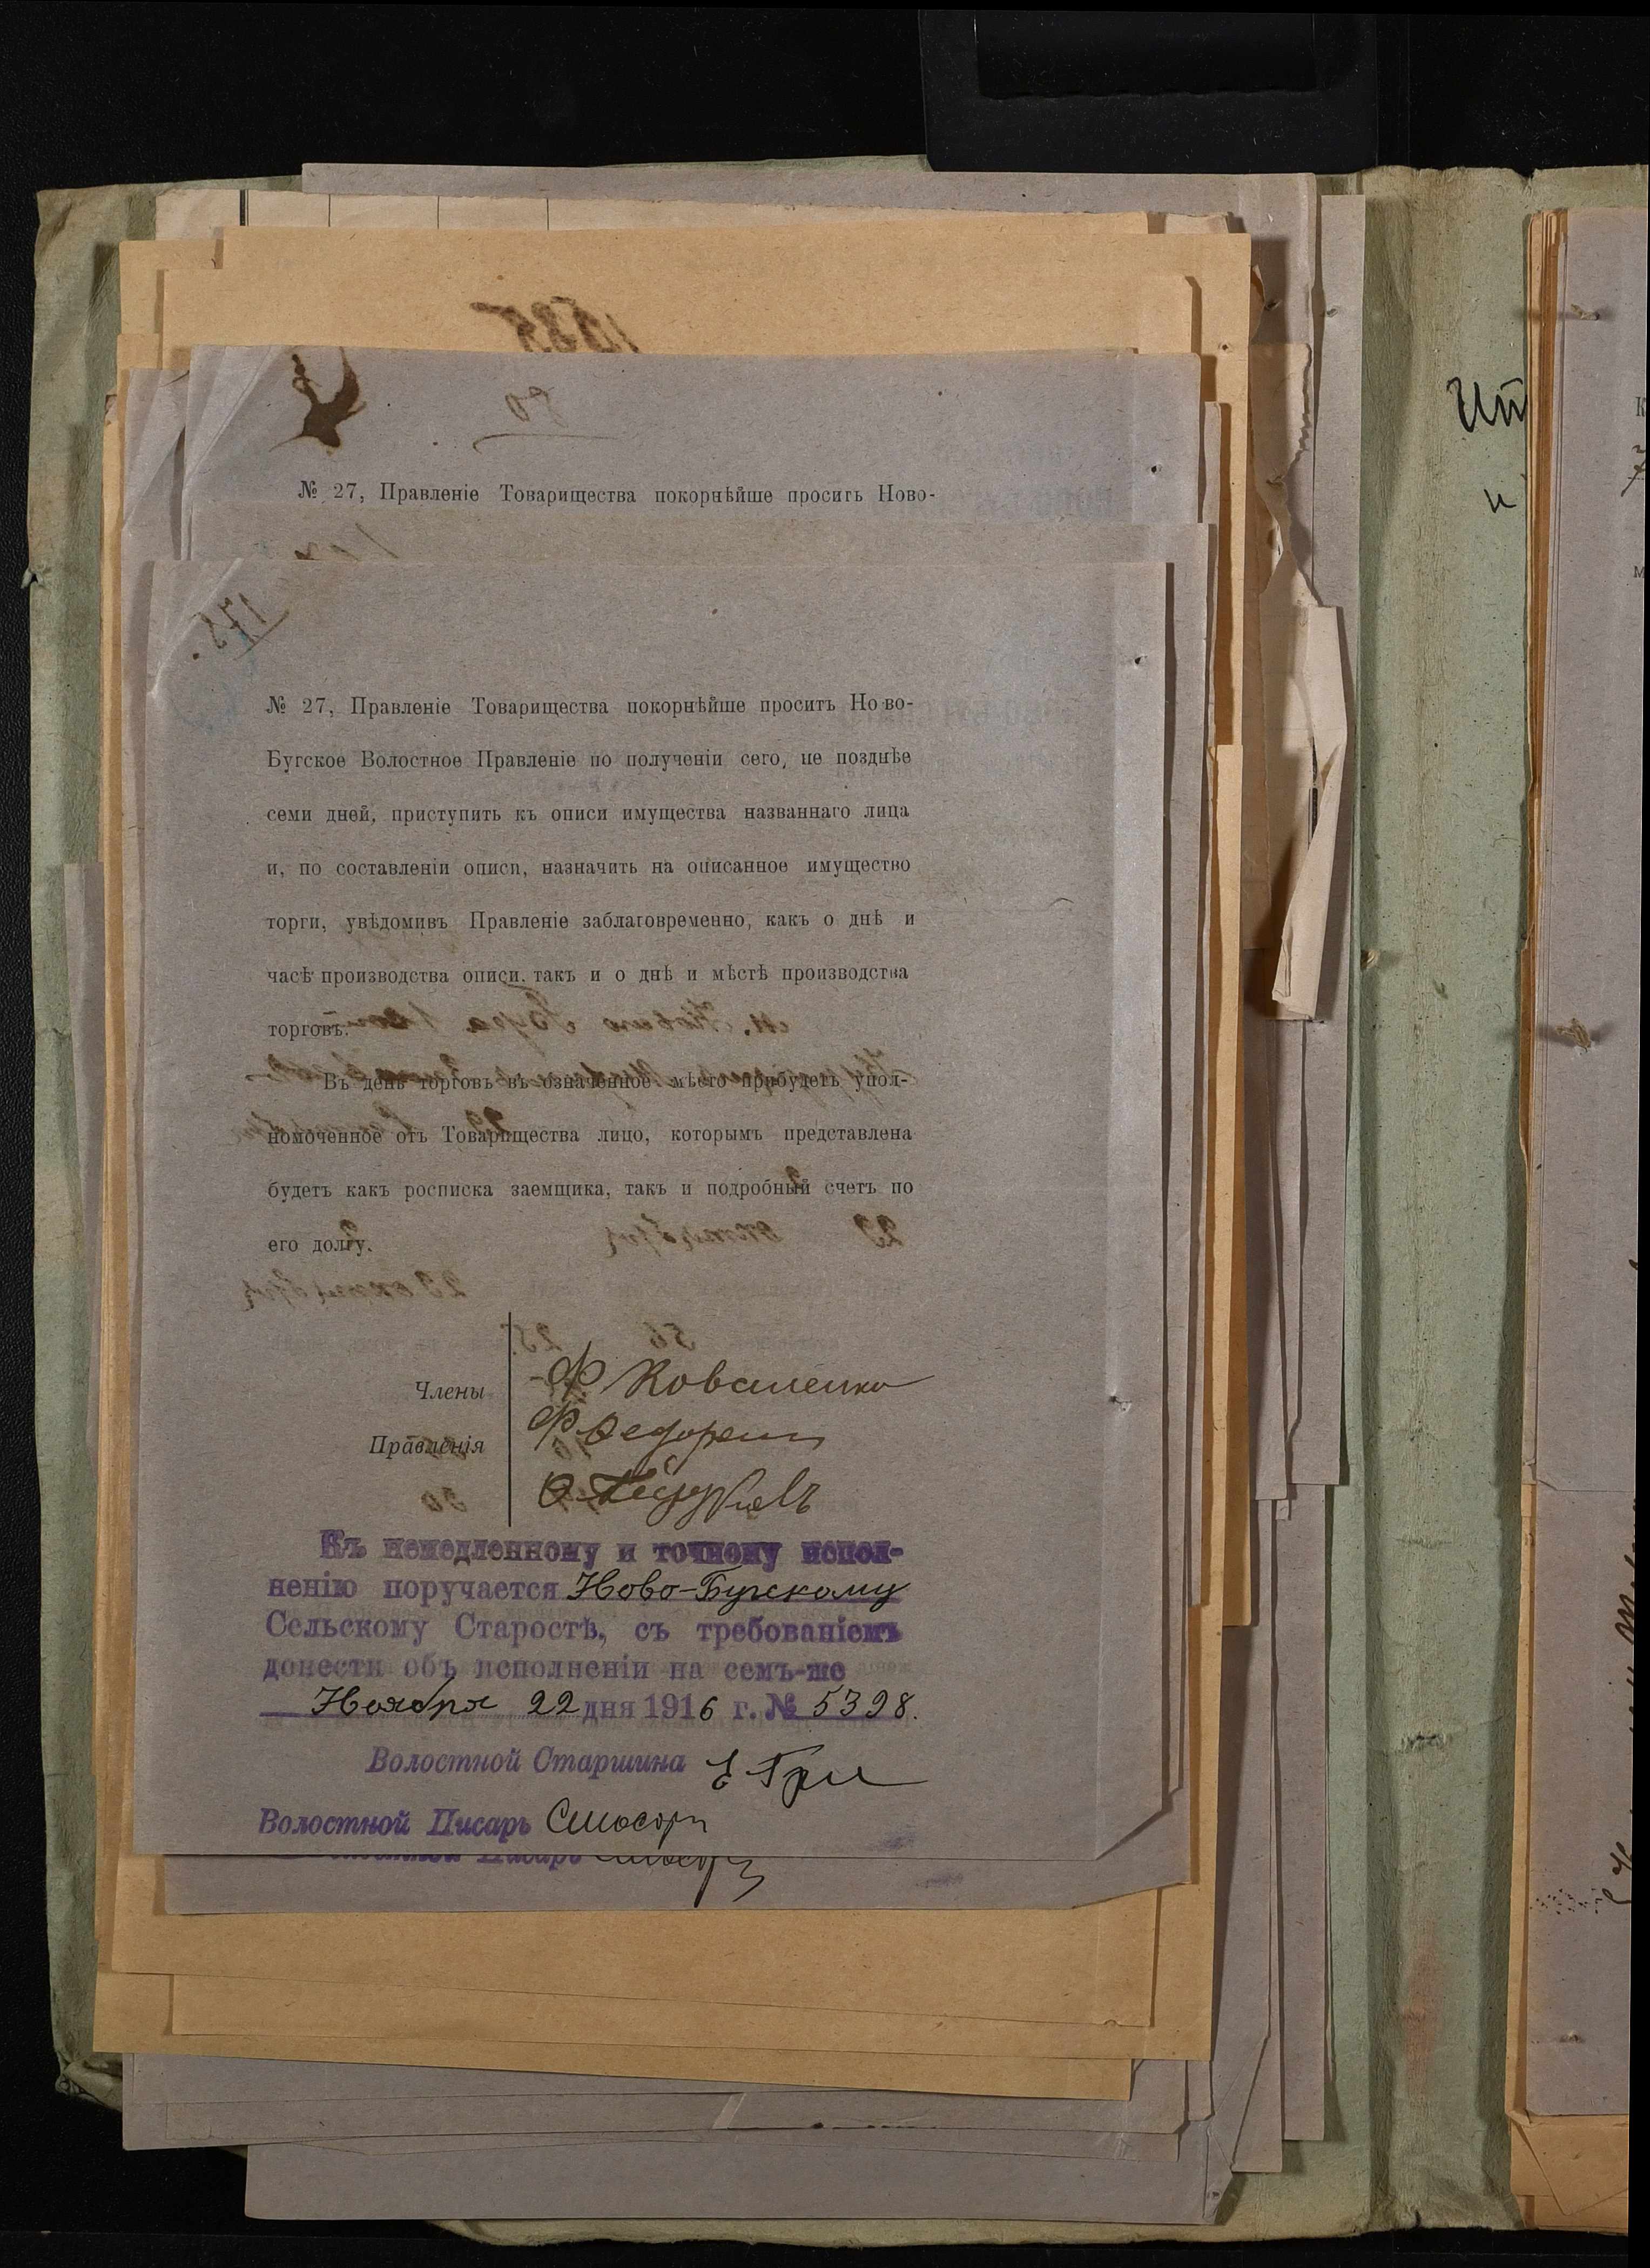 № 27, Правленіе Товарищества покорнѣйше проситъ Ново-
№ 27, Правленіе Товарищества покорнѣйше проситъ Ново-
Бугское Волостное Правленіе по полученіи сего, не позднѣе
семи дней, приступить къ описи имущества названнаго лица
и, по составленіи описи, назначить на описанное имущество
торги, увѣдомивъ Правленіе заблаговременно, какъ о днѣ и
часѣ производства описи, такъ и о днѣ и мѣстѣ производства
торговъ.
Въ день торговъ въ означенное мѣсто прибудетъ упол-
номоченное отъ Товарищества лицо, которымъ представлена
будетъ какъ росписка заемщика, такъ и подробный счетъ по
его долгу.
Члены Ф Коваленко
Правленія
Къ немедленному и точному испол-
ненію поручается Ново-Бугскому
Сельскому Старостѣ, съ требованіемъ
донести объ исполненіи на семъ-же
Ноября 22 дня 1916 г. № 5398.
Волостной Старшина
Волостной Писарь